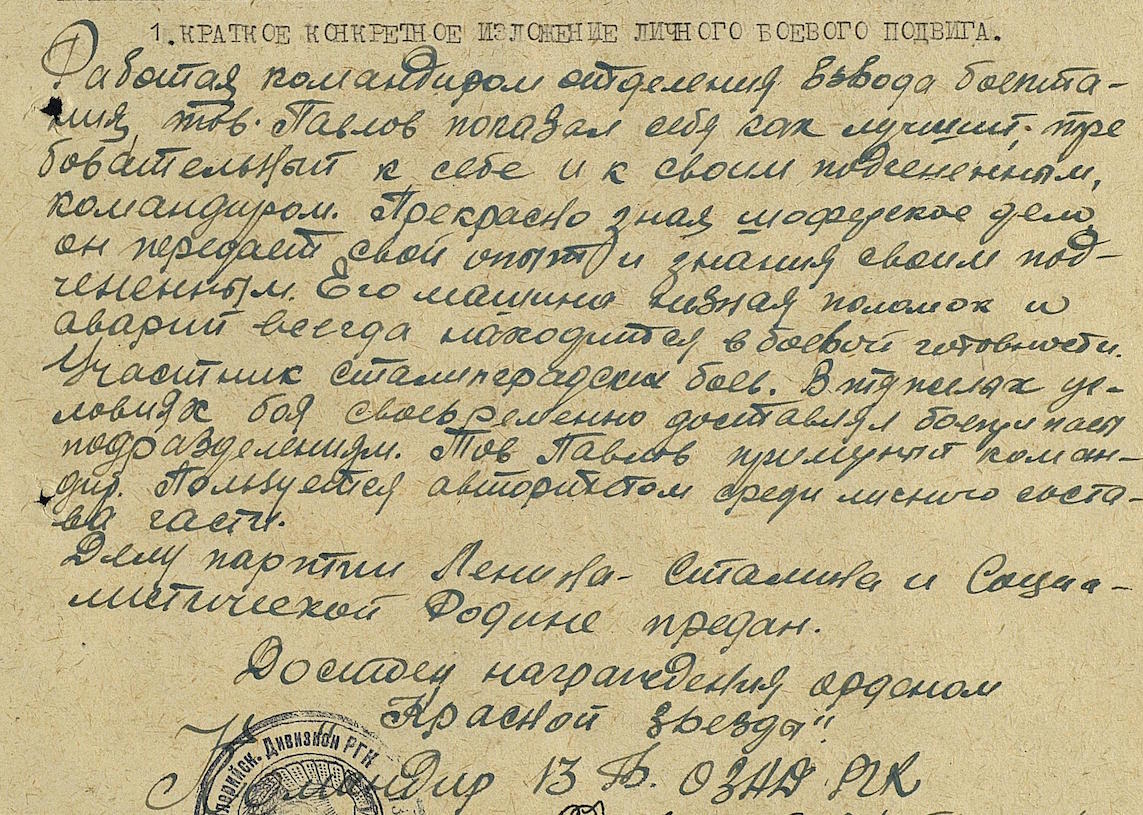 1. КРАТКОЕ КОНКРЕТНОЕ ИЗЛОЖЕНИЕ ЛИЧНОГО БОЕВОГО ПОДВИГА.
Работая командиром отделения взвода боепита-
ния, тов. Павлов показал себя как лучший, тре
бовательный к себе и к своим подчененным,
командиром. Прекрасно зная шоферское дело,
он передает свой опыт и знания своим под-
чененным. Его машина незная поломок и
аварий всегда находится в боевой готовности.
Участник сталинградских боев. В тяжелых ус-
ловиях боя своевременно доставлял боеприпасы
подразделениям. Тов Павлов примерный коман-
дир. Пользуется авторитетом среди личного соста-
ва части.
Делу партии Ленина - Сталина и Социа-
листической Родине предан.
Достоен награждения орденом
"Красной звезды"
Командир 13 ОЗАД РГК
Дивизион РГК